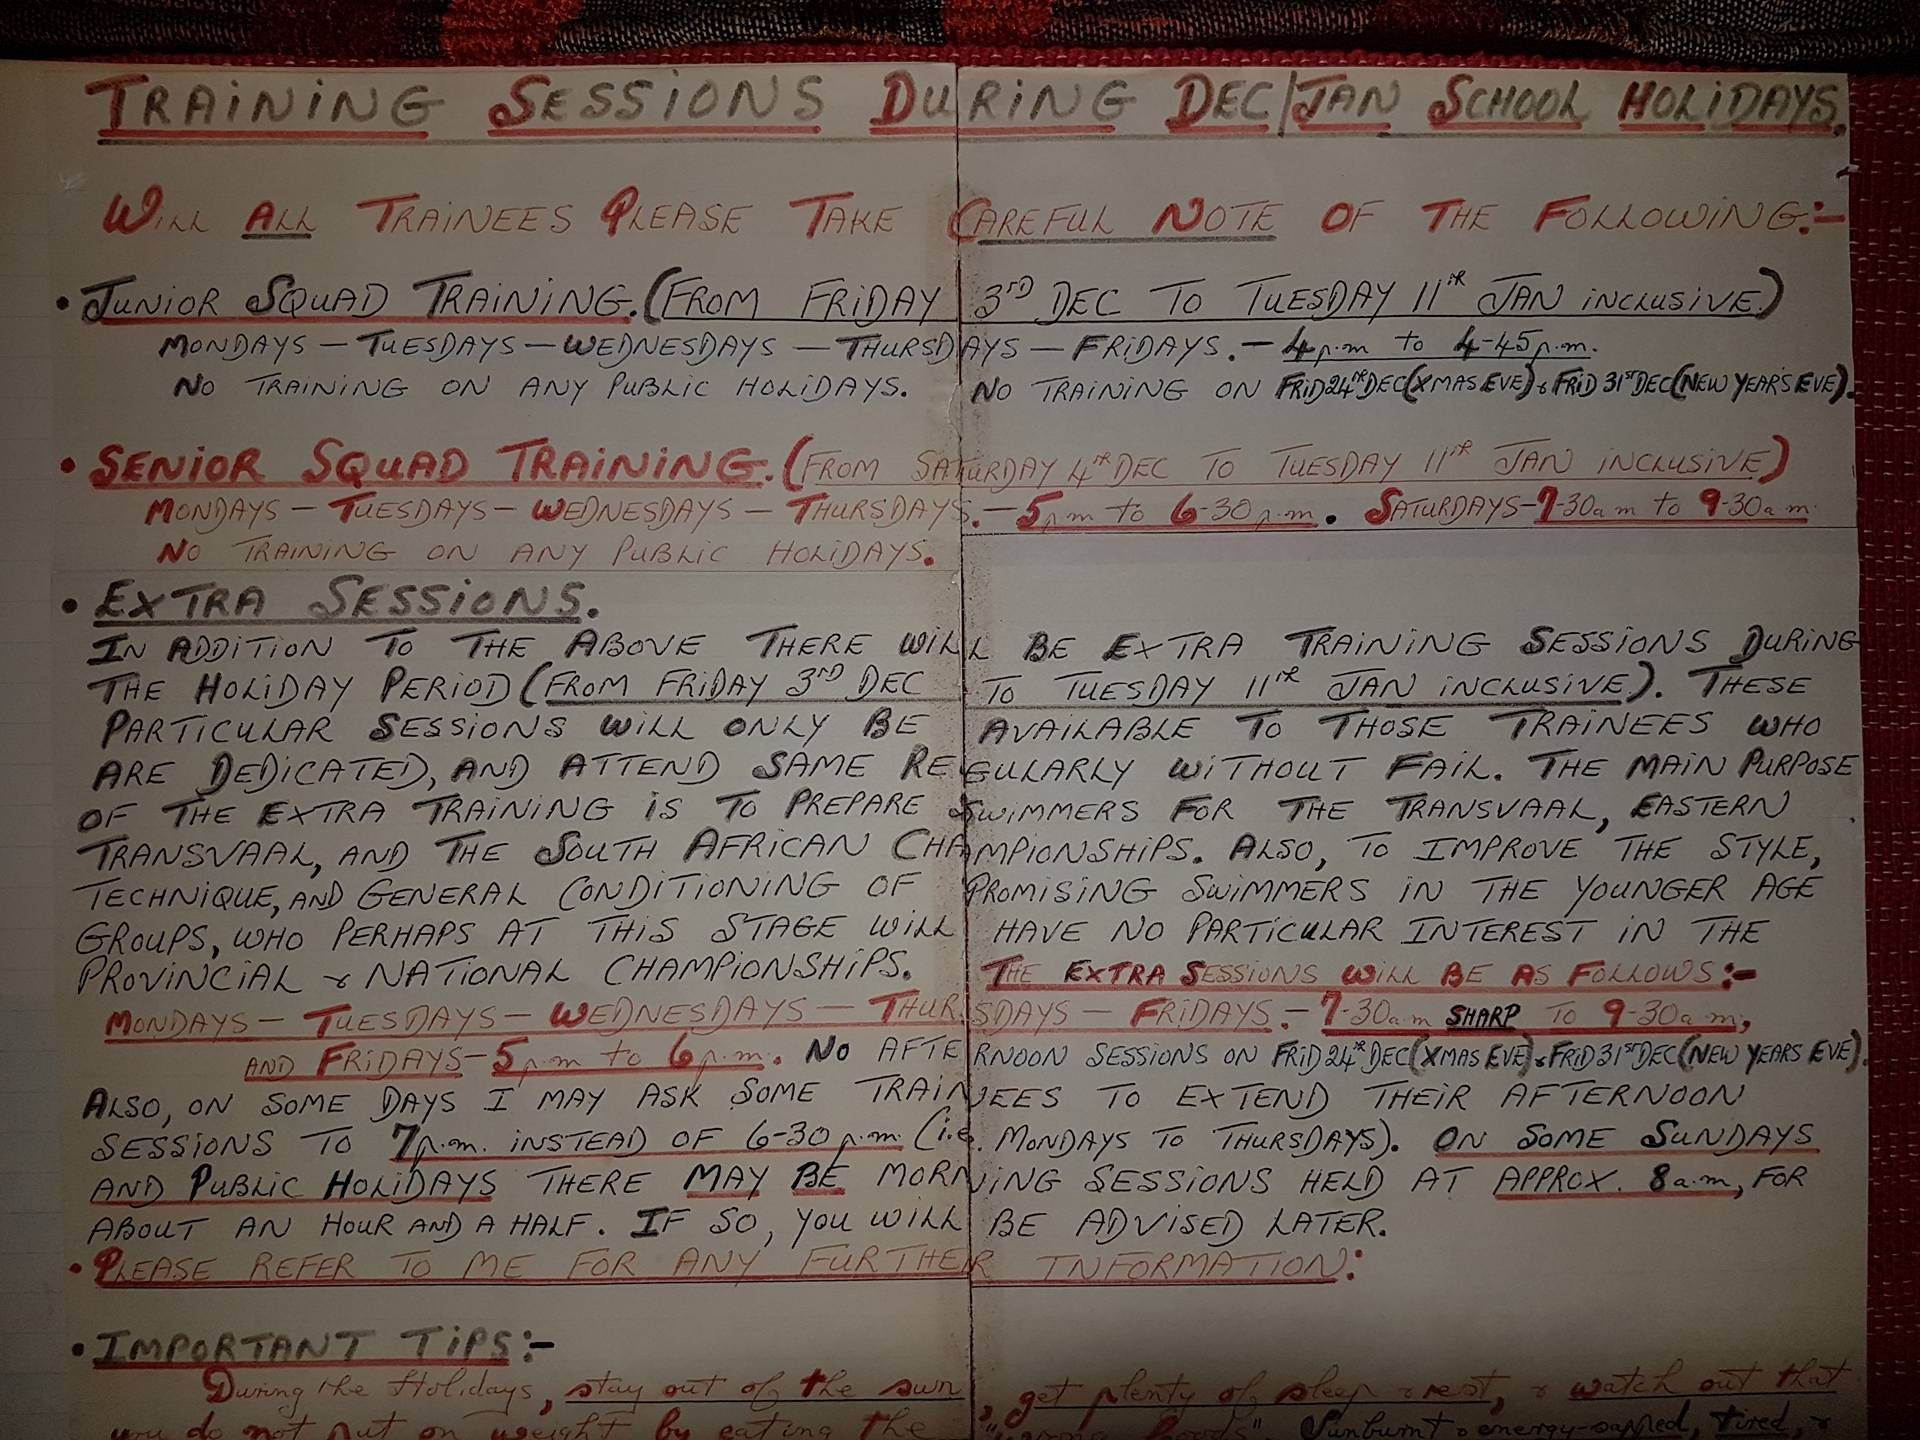 TRAINING SESSIONS DURING DEC/JAN SCHOOL HOLIDAYS.
WILL ALL TRAINEES PLEASE TAKE CAREFUL NOTE OF THE FOLLOWING:-
• JUNIOR SQUAD TRAINING. (FROM FRIDAY 3RD DEC TO TUESDAY 11TH JAN INCLUSIVE.)
MONDAYS — TUESDAYS — WEDNESDAYS — THURSDAYS — FRIDAYS. — 4 p.m to 4-45 p.m.
NO TRAINING ON ANY PUBLIC HOLIDAYS. NO TRAINING ON FRID 24TH DEC (XMAS EVE) & FRID 31ST DEC (NEW YEAR'S EVE).
• SENIOR SQUAD TRAINING. (FROM SATURDAY 4TH DEC TO TUESDAY 11TH JAN INCLUSIVE)
MONDAYS — TUESDAYS — WEDNESDAYS — THURSDAYS. — 5 p.m to 6-30 p.m. SATURDAYS - 7-30 a m to 9-30 a m
NO TRAINING ON ANY PUBLIC HOLIDAYS.
• EXTRA SESSIONS.
IN ADDITION TO THE ABOVE THERE WILL BE EXTRA TRAINING SESSIONS DURING
THE HOLIDAY PERIOD (FROM FRIDAY 3RD DEC TO TUESDAY 11TH JAN INCLUSIVE). THESE
PARTICULAR SESSIONS WILL ONLY BE AVAILABLE TO THOSE TRAINEES WHO
ARE DEDICATED, AND ATTEND SAME REGULARLY WITHOUT FAIL. THE MAIN PURPOSE
OF THE EXTRA TRAINING IS TO PREPARE SWIMMERS FOR THE TRANSVAAL, EASTERN
TRANSVAAL, AND THE SOUTH AFRICAN CHAMPIONSHIPS. ALSO, TO IMPROVE THE STYLE,
TECHNIQUE, AND GENERAL CONDITIONING OF PROMISING SWIMMERS IN THE YOUNGER AGE
GROUPS, WHO PERHAPS AT THIS STAGE WILL HAVE NO PARTICULAR INTEREST IN THE
PROVINCIAL & NATIONAL CHAMPIONSHIPS. THE EXTRA SESSIONS WILL BE AS FOLLOWS:-
MONDAYS — TUESDAYS — WEDNESDAYS — THURSDAYS — FRIDAYS. - 7-30 a.m SHARP TO 9-30 a.m,
AND FRIDAYS - 5 p.m to 6 p.m. NO AFTERNOON SESSIONS ON FRID 24TH DEC (XMAS EVE) & FRID 31ST DEC (NEW YEARS EVE).
ALSO, ON SOME DAYS I MAY ASK SOME TRAINEES TO EXTEND THEIR AFTERNOON
SESSIONS TO 7 p.m. INSTEAD OF 6-30 p.m. (i.e. MONDAYS TO THURSDAYS). ON SOME SUNDAYS
AND PUBLIC HOLIDAYS THERE MAY BE MORNING SESSIONS HELD AT APPROX. 8 a.m, FOR
ABOUT AN HOUR AND A HALF. IF SO, YOU WILL BE ADVISED LATER.
• PLEASE REFER TO ME FOR ANY FURTHER INFORMATION:
• IMPORTANT TIPS:-
During the Holidays, stay out of the sun, get plenty of sleep & rest, & watch out that
you do not put on weight by eating the "wrong foods". Sunburnt & energy-sapped, tired, &